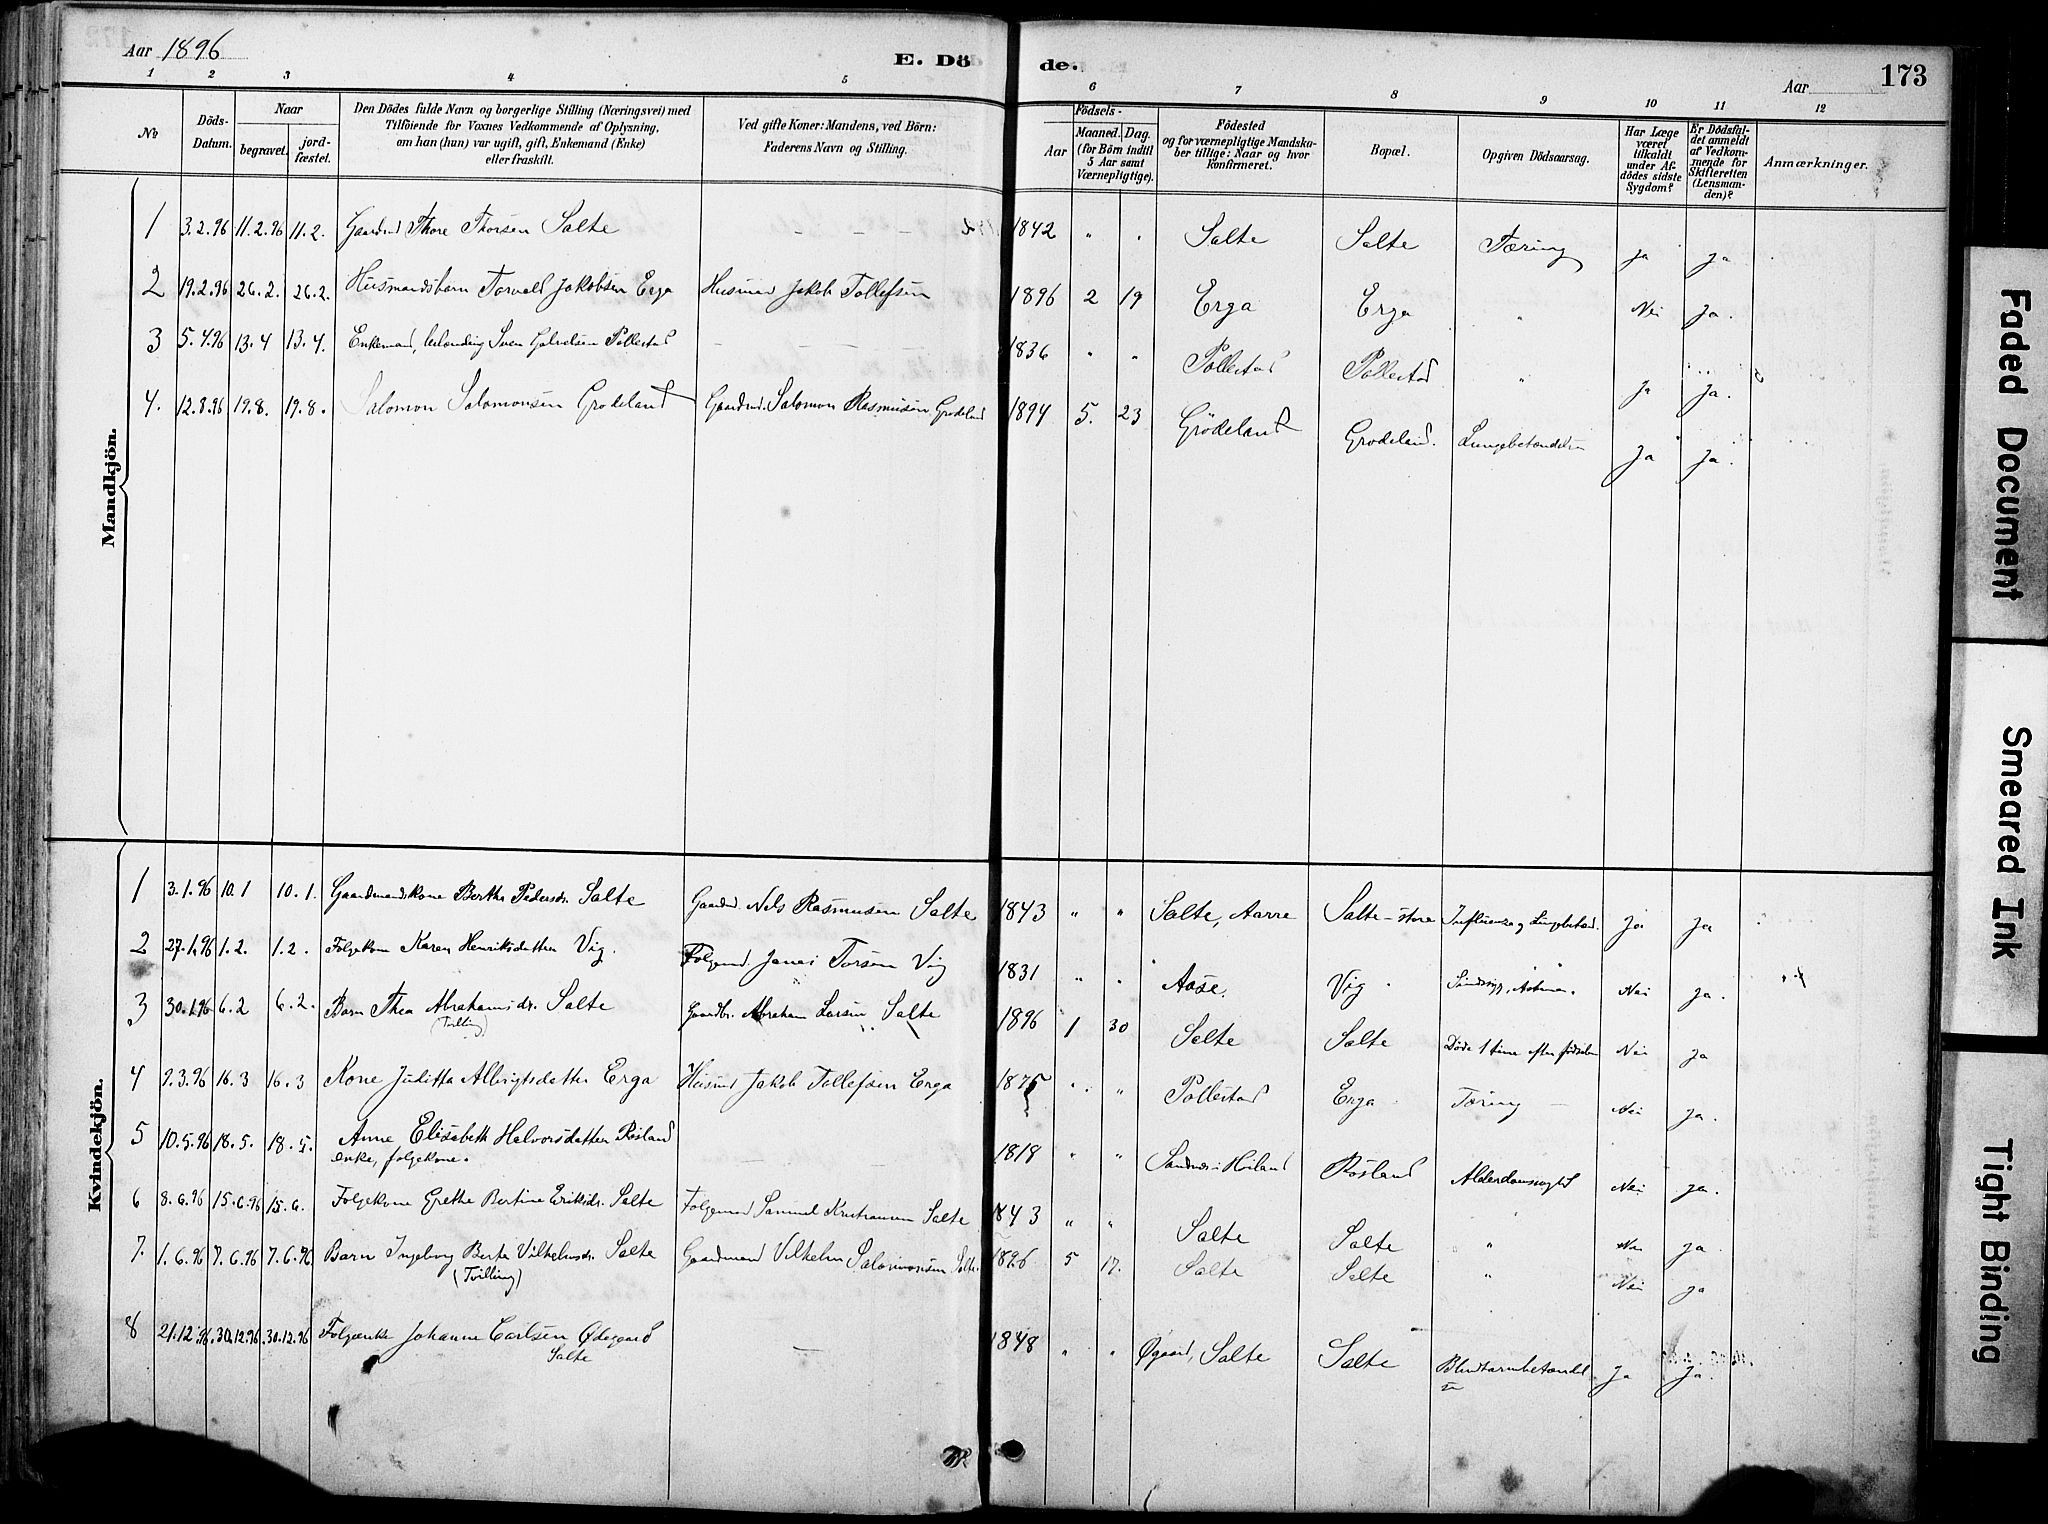 Aar 1896 E. Döde. Aar 173
1 2 3 4 5 6 7 8 9 10 11 12
No
Döds-Datum.
Naar
begravet. jordfæstet.
Den Dödes fulde Navn og borgerlige Stilling (Næringsvei) med
Tilföiende for Voxnes Vedkommende af Oplysning,
om han (hun) var ugift, gift, Enkemand (Enke)
eller fraskilt.
Ved gifte Koner: Mandens, ved Börn:
Faderens Navn og Stilling.
Födsels-
Aar
Maaned. Dag.
(for Börn indtil
5 Aar samt
Værnepligtige).
Födested
og for værnepligtige Mandska-
ber tillige: Naar og hvor
konfirmeret.
Bopæl.
Opgiven Dödsaarsag.
Har Læge
været
tilkaldt
under Af-
dödes sidste
Sygdom?
Er Dödsfal-
det anmeldt
af Vedkom-
mende for
Skifteretten
(Lensman-
den)?
Anmærkninger.
Mandkjön.
1 3.2.96 11.2.96 11.2. Gaardmd Thore Thorsen Salte - - - 1842 " " Salte Salte Tæring Ja Ja
2 19.2.96 26.2. 26.2. Husmandsbarn Torvald Jakobsen Erga Husmd Jakob Tollefsen 1896 2 19 Erga Erga " Nei Ja.
3 5.4.96 13.4 13.4. Enkemand, Sven Pollestad - - - 1836 " " Pollestad Pollestad " Ja Ja.
4. 12.8.96 19.8. 19.8. Salomon Salomonsen Grødeland Gaardmd. Salomon Rasmusen Grødeland 1894 5. 23 Grödeland Grødeland. Lungebetændelse Ja Ja.
Kvindekjön.
1 3.1.96 10.1 10.1. Gaardmandskone Berthe Pedersdr. Salte Gaardmd. Nels Rasmusen Salte 1843 " " Salte, Aarre Salte-store Influenza og Lungebetænd. Ja Ja
2 27.1.96 1.2. 1.2. Folgekone Karen Henriksdatter Vig. Folgemd. Torsen Vig 1831 " " Aase. Vig Nei Ja.
3 30.1.96 6.2 6.2. Barn Thea Abrahamsdr. Salte Gaardbr. Abraham Larsen Salte 1896 1 30 Salte Salte Døde 1 time efter fødselen Nei Ja
(Tvilling)
4 9.3.96 16.3 16.3 Kone Juditta Albrigtsdatter Erga Husmd Jakob Tollefsen Erga 1875 " " Pollestad Erga Tæring Nei Ja.
5 10.5.96 18.5. 18.5. Anne Elisabeth Halvorsdatter Røsland - - 1818 " " Sandnes i Høiland Røsland Alderdomssvaghed Nei Ja.
enke, folgekone.
6 8.6.96 15.6.96 15.6. Folgekone Grethe Bertine Eriksdr. Salte Folgemd Samuel Salte 1843 " " Salte Salte " Nei Ja.
7. 1.6.96 7.6.96 7.6.96 Barn Ingeborg Berta Vilhelmsdr. Salte Gaardmand Vilhelm Salomonsen Salte. 1896 5 17. Salte Salte " Nei Ja
(Tvilling)
8 21.12.96. 30.12.96. 30.12.96 Folgeenke Johanne Carlsen Ødegaard - 1848 " " Øgaard, Salte Salte Blindtarmbetændelse Ja Ja.
Salte
Faded Document
Smeared Ink
Tight Binding